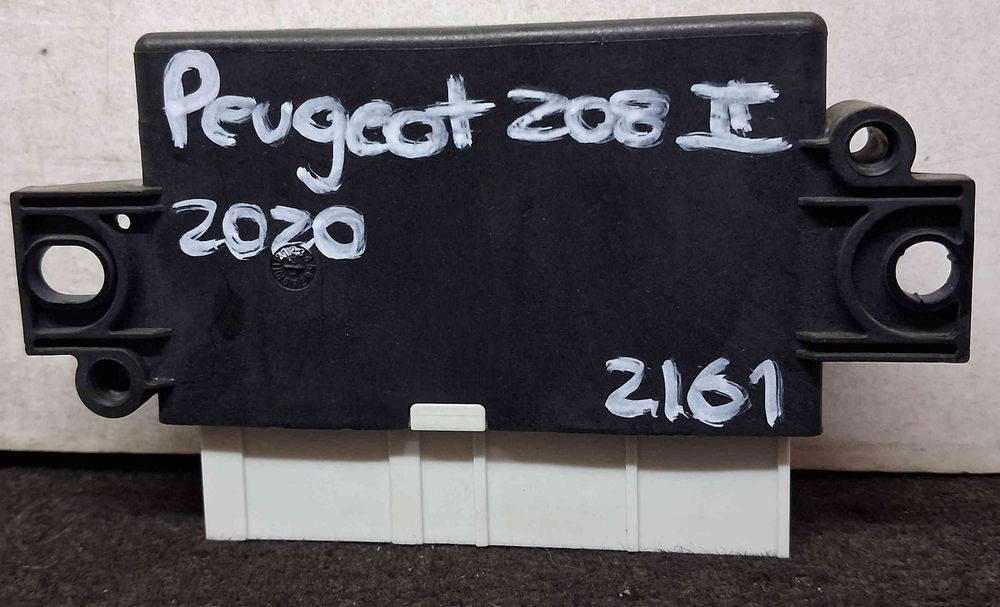 Peugeot 208 II
2020
2161